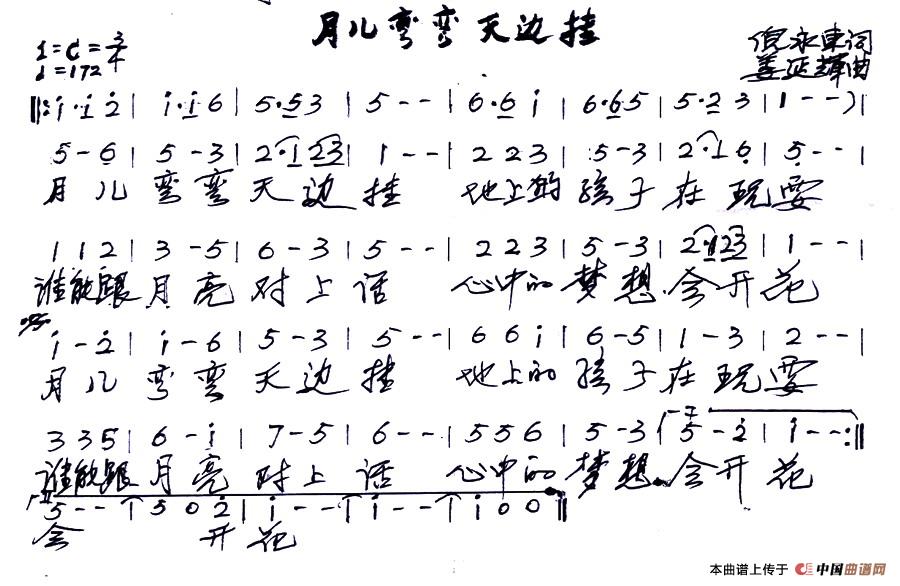 月儿弯弯天边挂
1=C=3/4
♩=172
倪永东词
姜延辉曲
‖: i·i 2 | i·i 6 | 5·5 3 | 5 - - | 6·6 i | 6·6 5 | 5·2 3 | 1 - - )
5 - 6 | 5 - 3 | 2·1 23 | 1 - - | 2 2 3 | 5 - 3 | 2·1 6 | 5 - - |
月儿弯弯天边挂 地上的孩子在玩耍
1 1 2 | 3 - 5 | 6 - 3 | 5 - - | 2 2 3 | 5 - 3 | 2·1 23 | 1 - - |
谁能跟月亮对上话 心中的梦想会开花
i - 2 | i - 6 | 5 - 3 | 5 - - | 6 6 i | 6 - 5 | 1 - 3 | 2 - - |
月儿弯弯天边挂 地上的孩子在玩耍
3 3 5 | 6 - i | 7 - 5 | 6 - - | 5 5 6 | 5 - 3 | 5 - 2 | i - - :‖
谁能跟月亮对上话 心中的梦想会开花
5 - - | 5 0 2 | i - - | i - - | i 0 0 ‖
会开花
本曲谱上传于 中国曲谱网